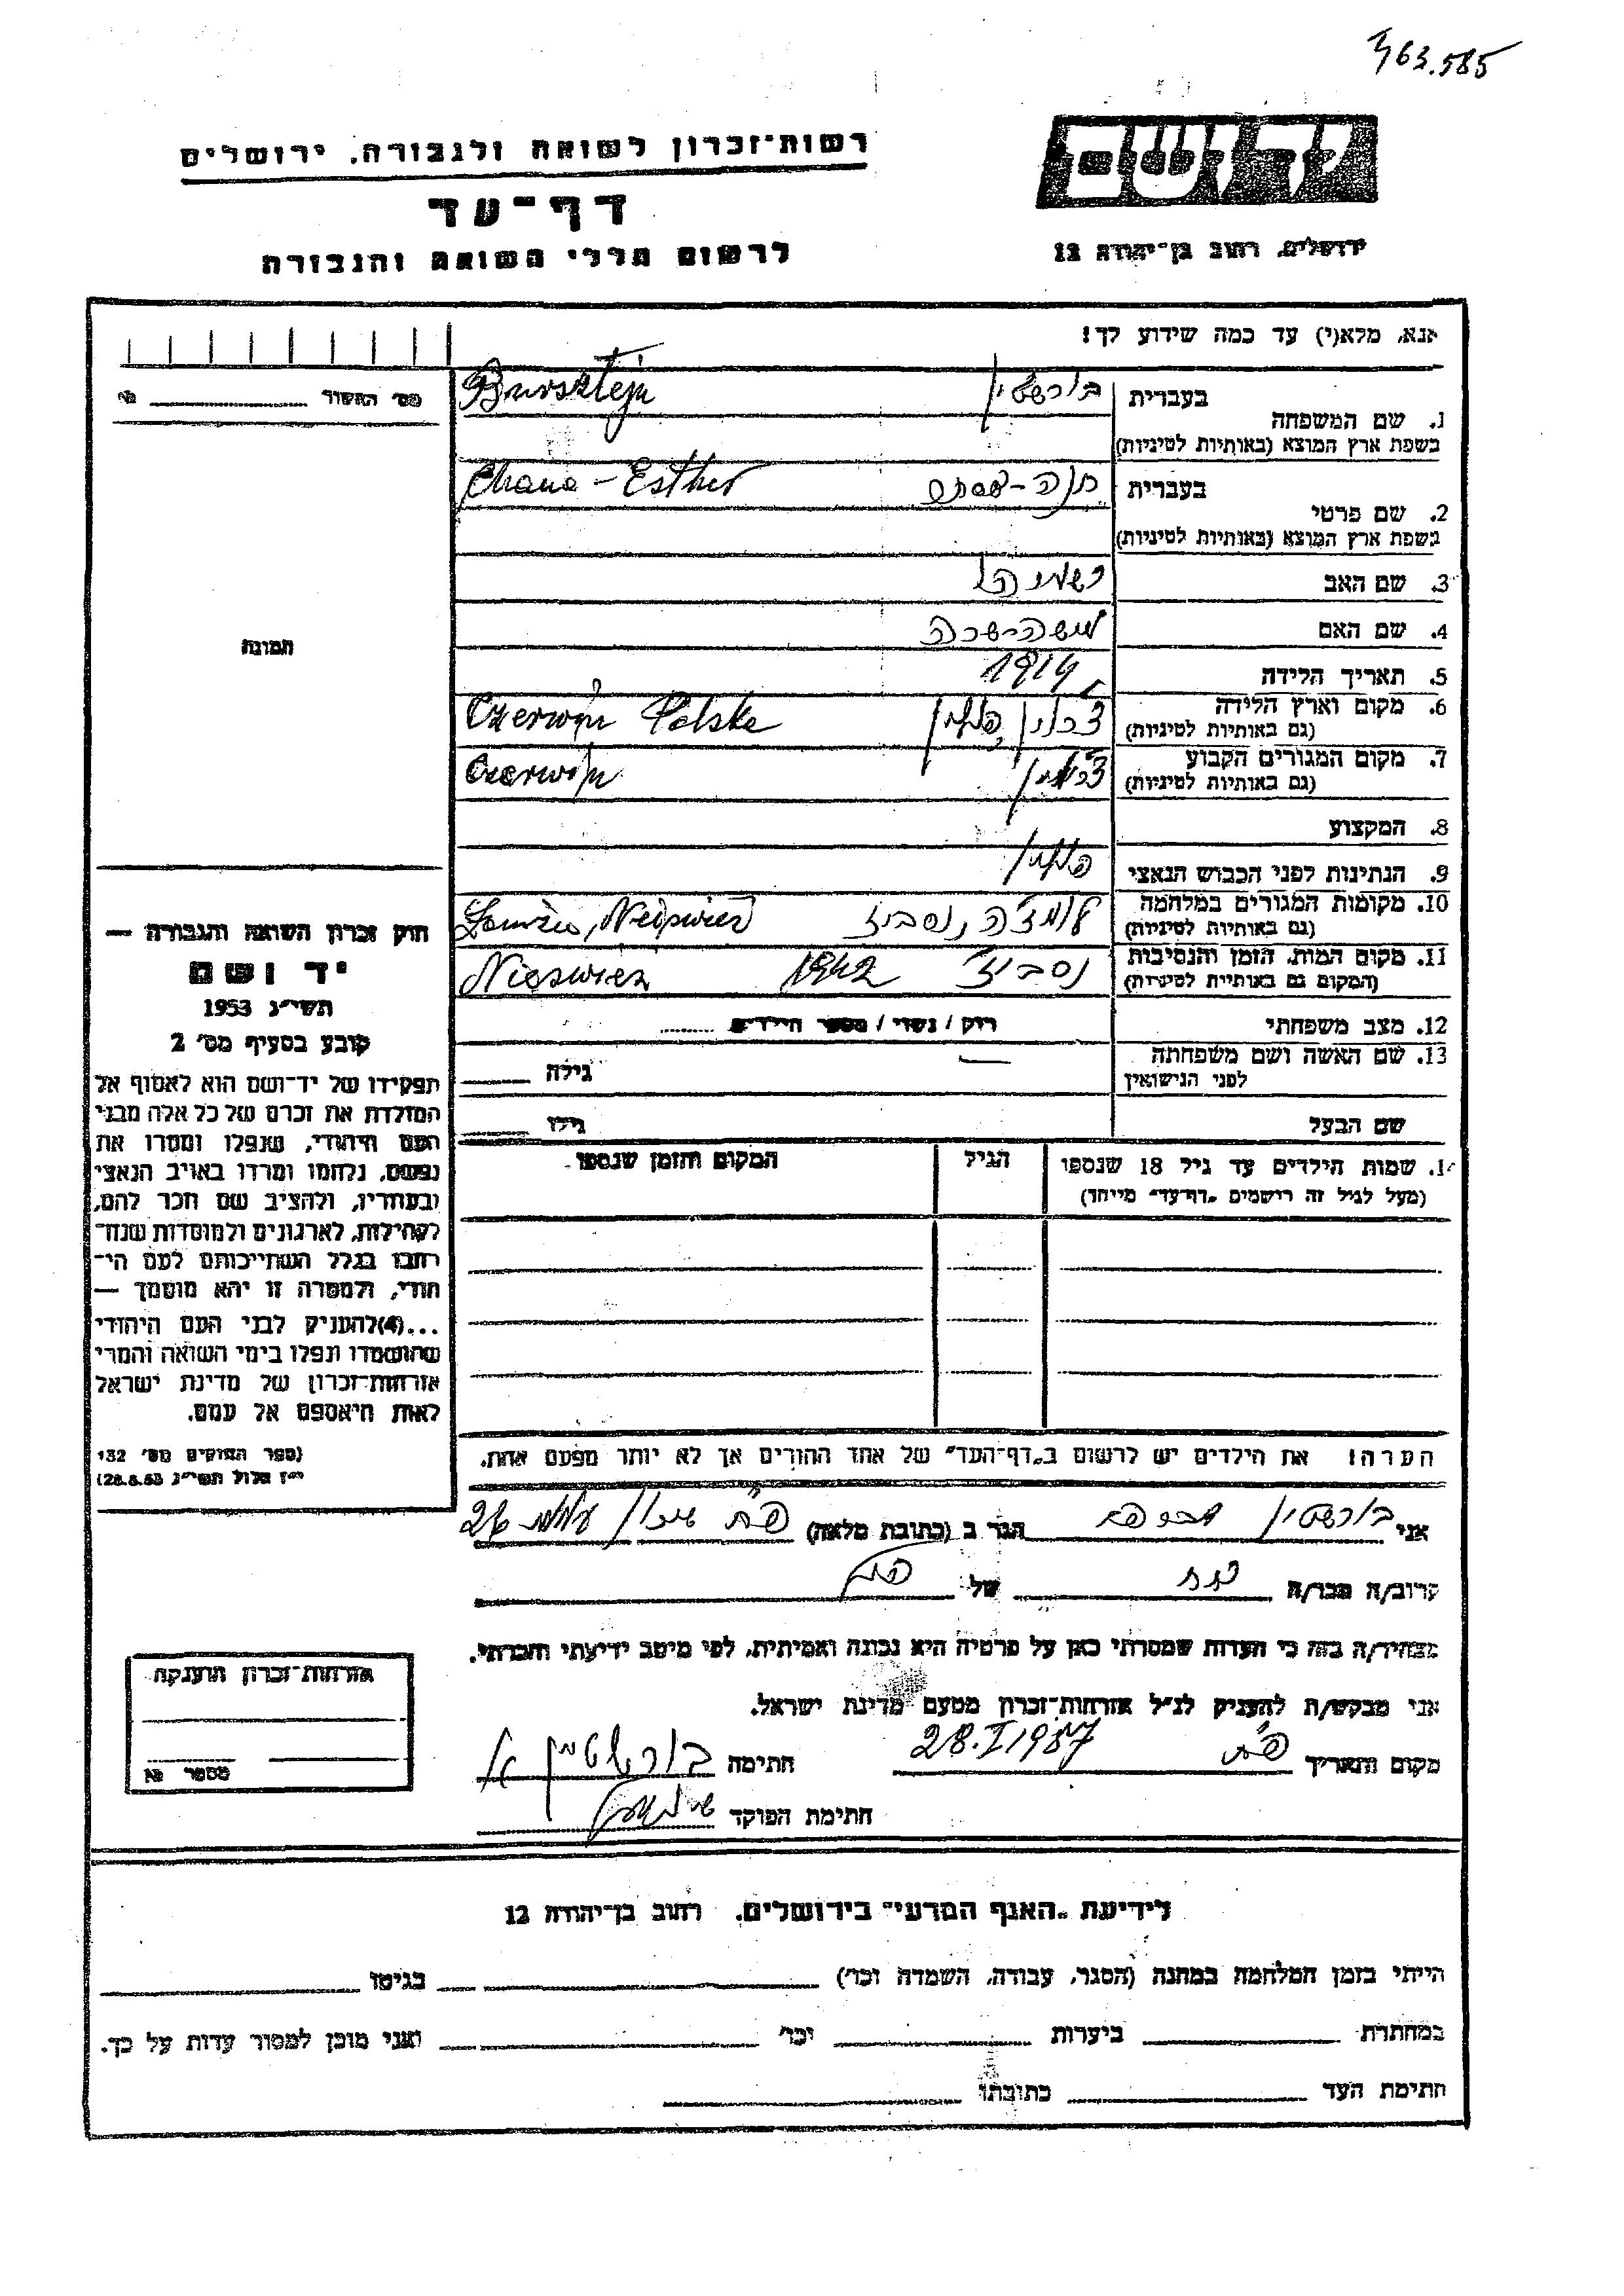 463.585
יד ושם
רשות־זכרון לשואה ולגבורה. ירושלים
דף־עד
לרשום חללי השואה והגבורה
ירושלים, רחוב בן־יהודה 12
אנא, מלא(י) עד כמה שידוע לך!
מס' האשור №
בעברית בורשטין Bursztejn
1. שם המשפחה
בשפת ארץ המוצא (באותיות לטיניות)
בעברית חנה-אסתר Chana-Esther
2. שם פרטי
בשפת ארץ המוצא (באותיות לטיניות)
3. שם האב
4. שם האם
5. תאריך הלידה 1914
6. מקום וארץ הלידה פולין Czerwin Polska
(גם באותיות לטיניות)
7. מקום המגורים הקבוע Czerwin
(גם באותיות לטיניות)
8. המקצוע
9. הנתינות לפני הכבוש הנאצי פולין
10. מקומות המגורים במלחמה לומז'ה, נסביז
(גם באותיות לטיניות)
11. מקום המות, הזמן והנסיבות נסביז 1942 Nieswiez
(המקום גם באותיות לטיניות)
12. מצב משפחתי רווק / נשוי / מספר הילדים
13. שם האשה ושם משפחתה גילה
לפני הנישואין
שם הבעל גילו
שמות הילדים עד גיל 18 שנספו הגיל המקום והזמן שנספו
(מעל לגיל זה רושמים „דף־עד" מיוחד)
הערה! את הילדים יש לרשום ב„דף־העד" של אחד ההורים אך לא יותר מפעם אחת.
תמונה
חוק זכרון השואה והגבורה —
יד ושם
תשי"ג 1953
קובע בסעיף מס' 2
תפקידו של יד־ושם הוא לאסוף אל
המולדת את זכרם של כל אלה מבני
העם היהודי, שנפלו ומסרו את
נפשם, נלחמו ומרדו באויב הנאצי
ובעוזריו, ולהציב שם וזכר להם,
לקהילות, לארגונים ולמוסדות שנח־
רחבו בגלל השתייכותם לעם הי־
הודי, ולמטרה זו יהא מוסמך —
...(4)להעניק לבני העם היהודי
שהושמדו ונפלו בימי השואה והמרי
אזרחות־זכרון של מדינת ישראל
לאות היאספם אל עמם.
(ספר החוקים מס' 132
י"ז אלול תשי"ג 28.8.53)
אני בורשטין הגר ב (כתובת מלאה) פ"ת 26
קרוב/ה מכר/ה של
מצהיר/ה בזה כי העדות שמסרתי כאן על פרטיה היא נכונה ואמיתית, לפי מיטב ידיעתי והכרתי.
אני מבקש/ת להעניק לנ"ל אזרחות־זכרון מטעם מדינת ישראל.
מקום ותאריך פ"ת 28.I 1957 חתימה בורשטין א
חתימת הפוקד
אזרחות־זכרון הוענקה
מספר №
לידיעת „האגף המדעי" בירושלים. רחוב בן־יהודה 12
הייתי בזמן המלחמה במחנה (הסגר, עבודה, השמדה וכו') בגיטו
במחתרת ביערות וכו' ואני מוכן למסור עדות על כך.
חתימת העד כתובתו